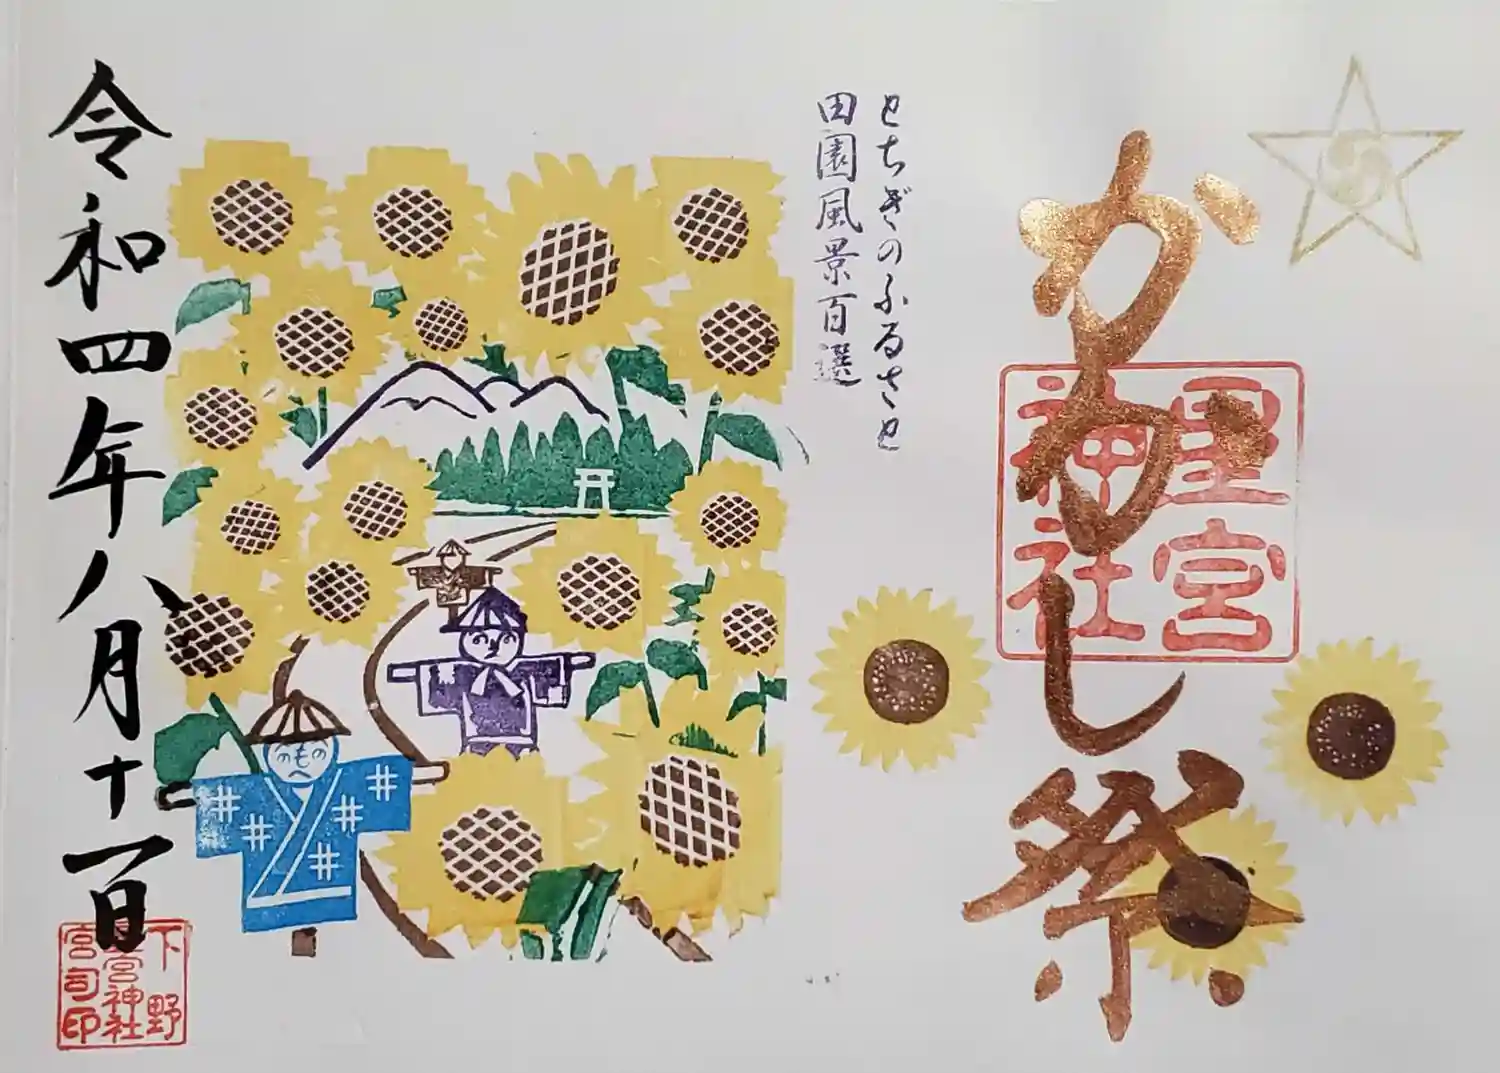 かかし祭
星宮
神社
とちぎのふるさと
田園風景百選
令和四年八月十一日
下野
星宮神社
宮司印